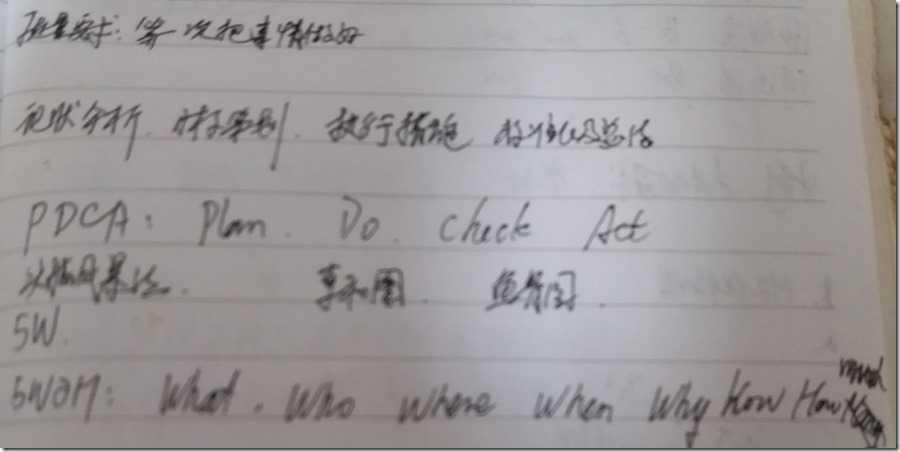 质量要求：第一次把事情做好
现状分析. 对标策划. 执行措施 标准化及总结
PDCA: Plan. Do. Check Act
头脑风暴法. 亲和图. 鱼骨图.
5W.
5W2H: What. Who Where When Why How How